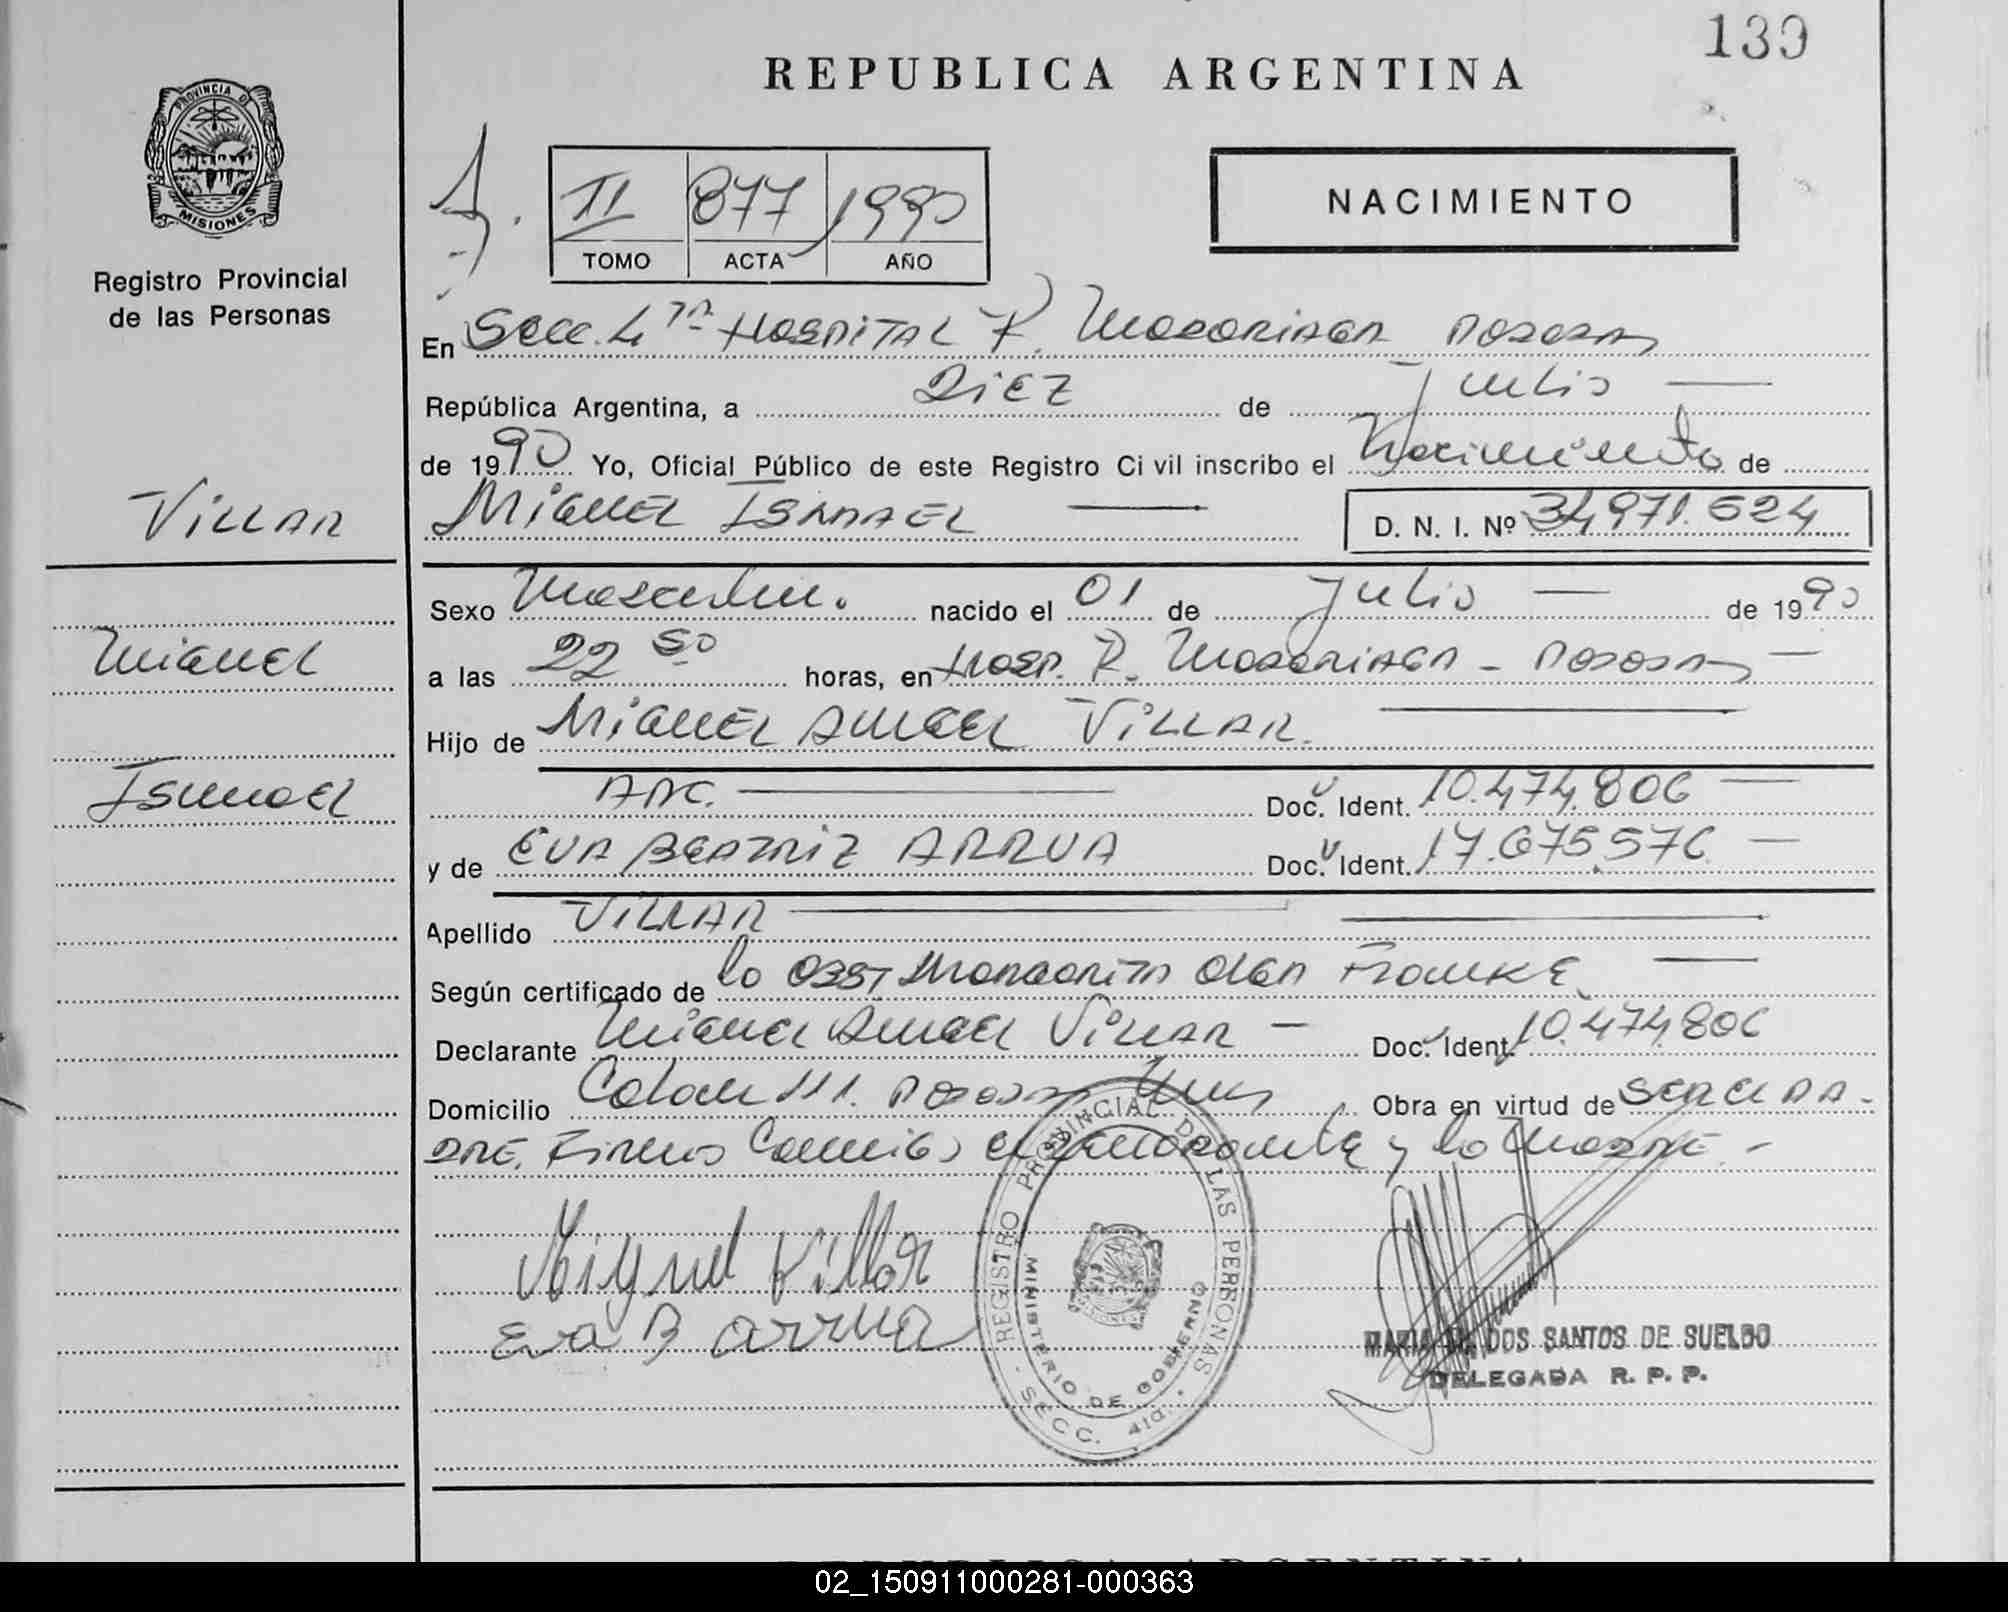 139
REPUBLICA ARGENTINA
PROVINCIA DE
MISIONES
Registro Provincial
de las Personas
II 877 1990
TOMO ACTA AÑO
NACIMIENTO
En Secc. 4ta Hospital R. Madariaga Posadas
República Argentina, a Diez de Julio
de 1990 Yo, Oficial Público de este Registro Civil inscribo el Nacimiento de
Miguel Ismael D. N. I. Nº 34971.624
Villar
Miguel
Ismael
Sexo Masculin. nacido el 01 de Julio de 1990
a las 22 50 horas, en Hosp. R. Madariaga - Posadas
Hijo de Miguel Angel Villar.
Arg. Doc. Ident. 10.474.806
y de Eva Beatriz Arrua Doc. Ident. 17.675.576
Apellido Villar
Según certificado de la Obst Margarita Olga Franke
Declarante Miguel Angel Villar - Doc. Ident. 10.474.806
Domicilio Colon 111. Posadas Mnes Obra en virtud de Ser el Pa-
dre. Firmas Conmigo el y la Madre. -
Miguel Villar
Eva B Arrua
REGISTRO PROVINCIAL DE LAS PERSONAS
MINISTERIO DE GOBIERNO
SECC. 4ta.
MARIA DOS SANTOS DE SUELDO
DELEGADA R. P. P.
REPUBLICA ARGENTINA
02_150911000281-000363